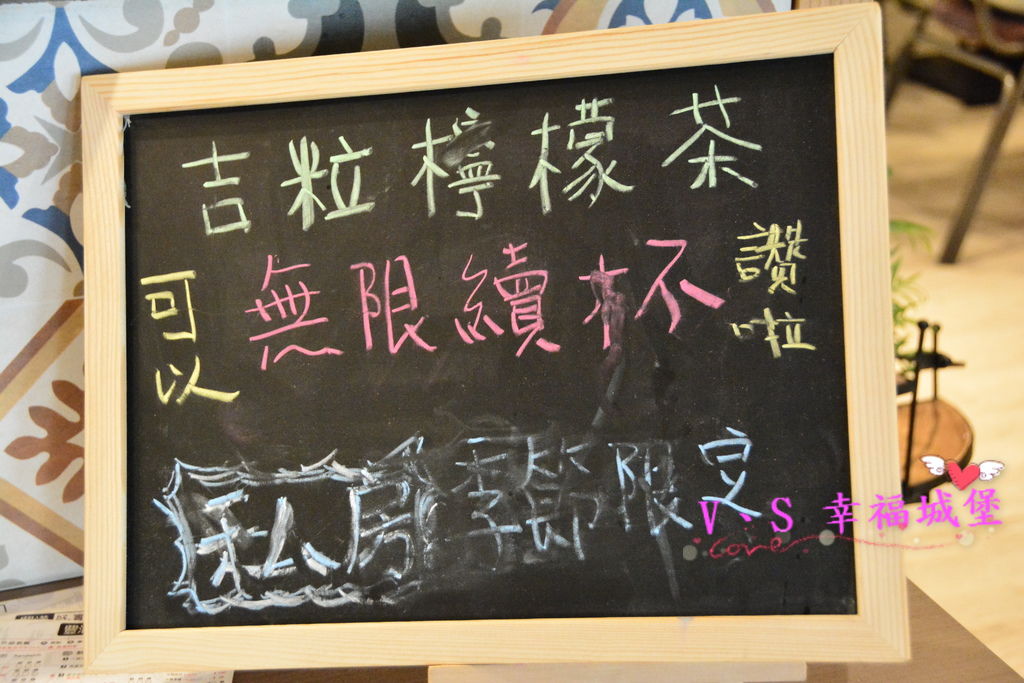 吉粒檸檬茶
可以
無限續杯
讚啦
私房
季節限定
V、S 幸福城堡
Love